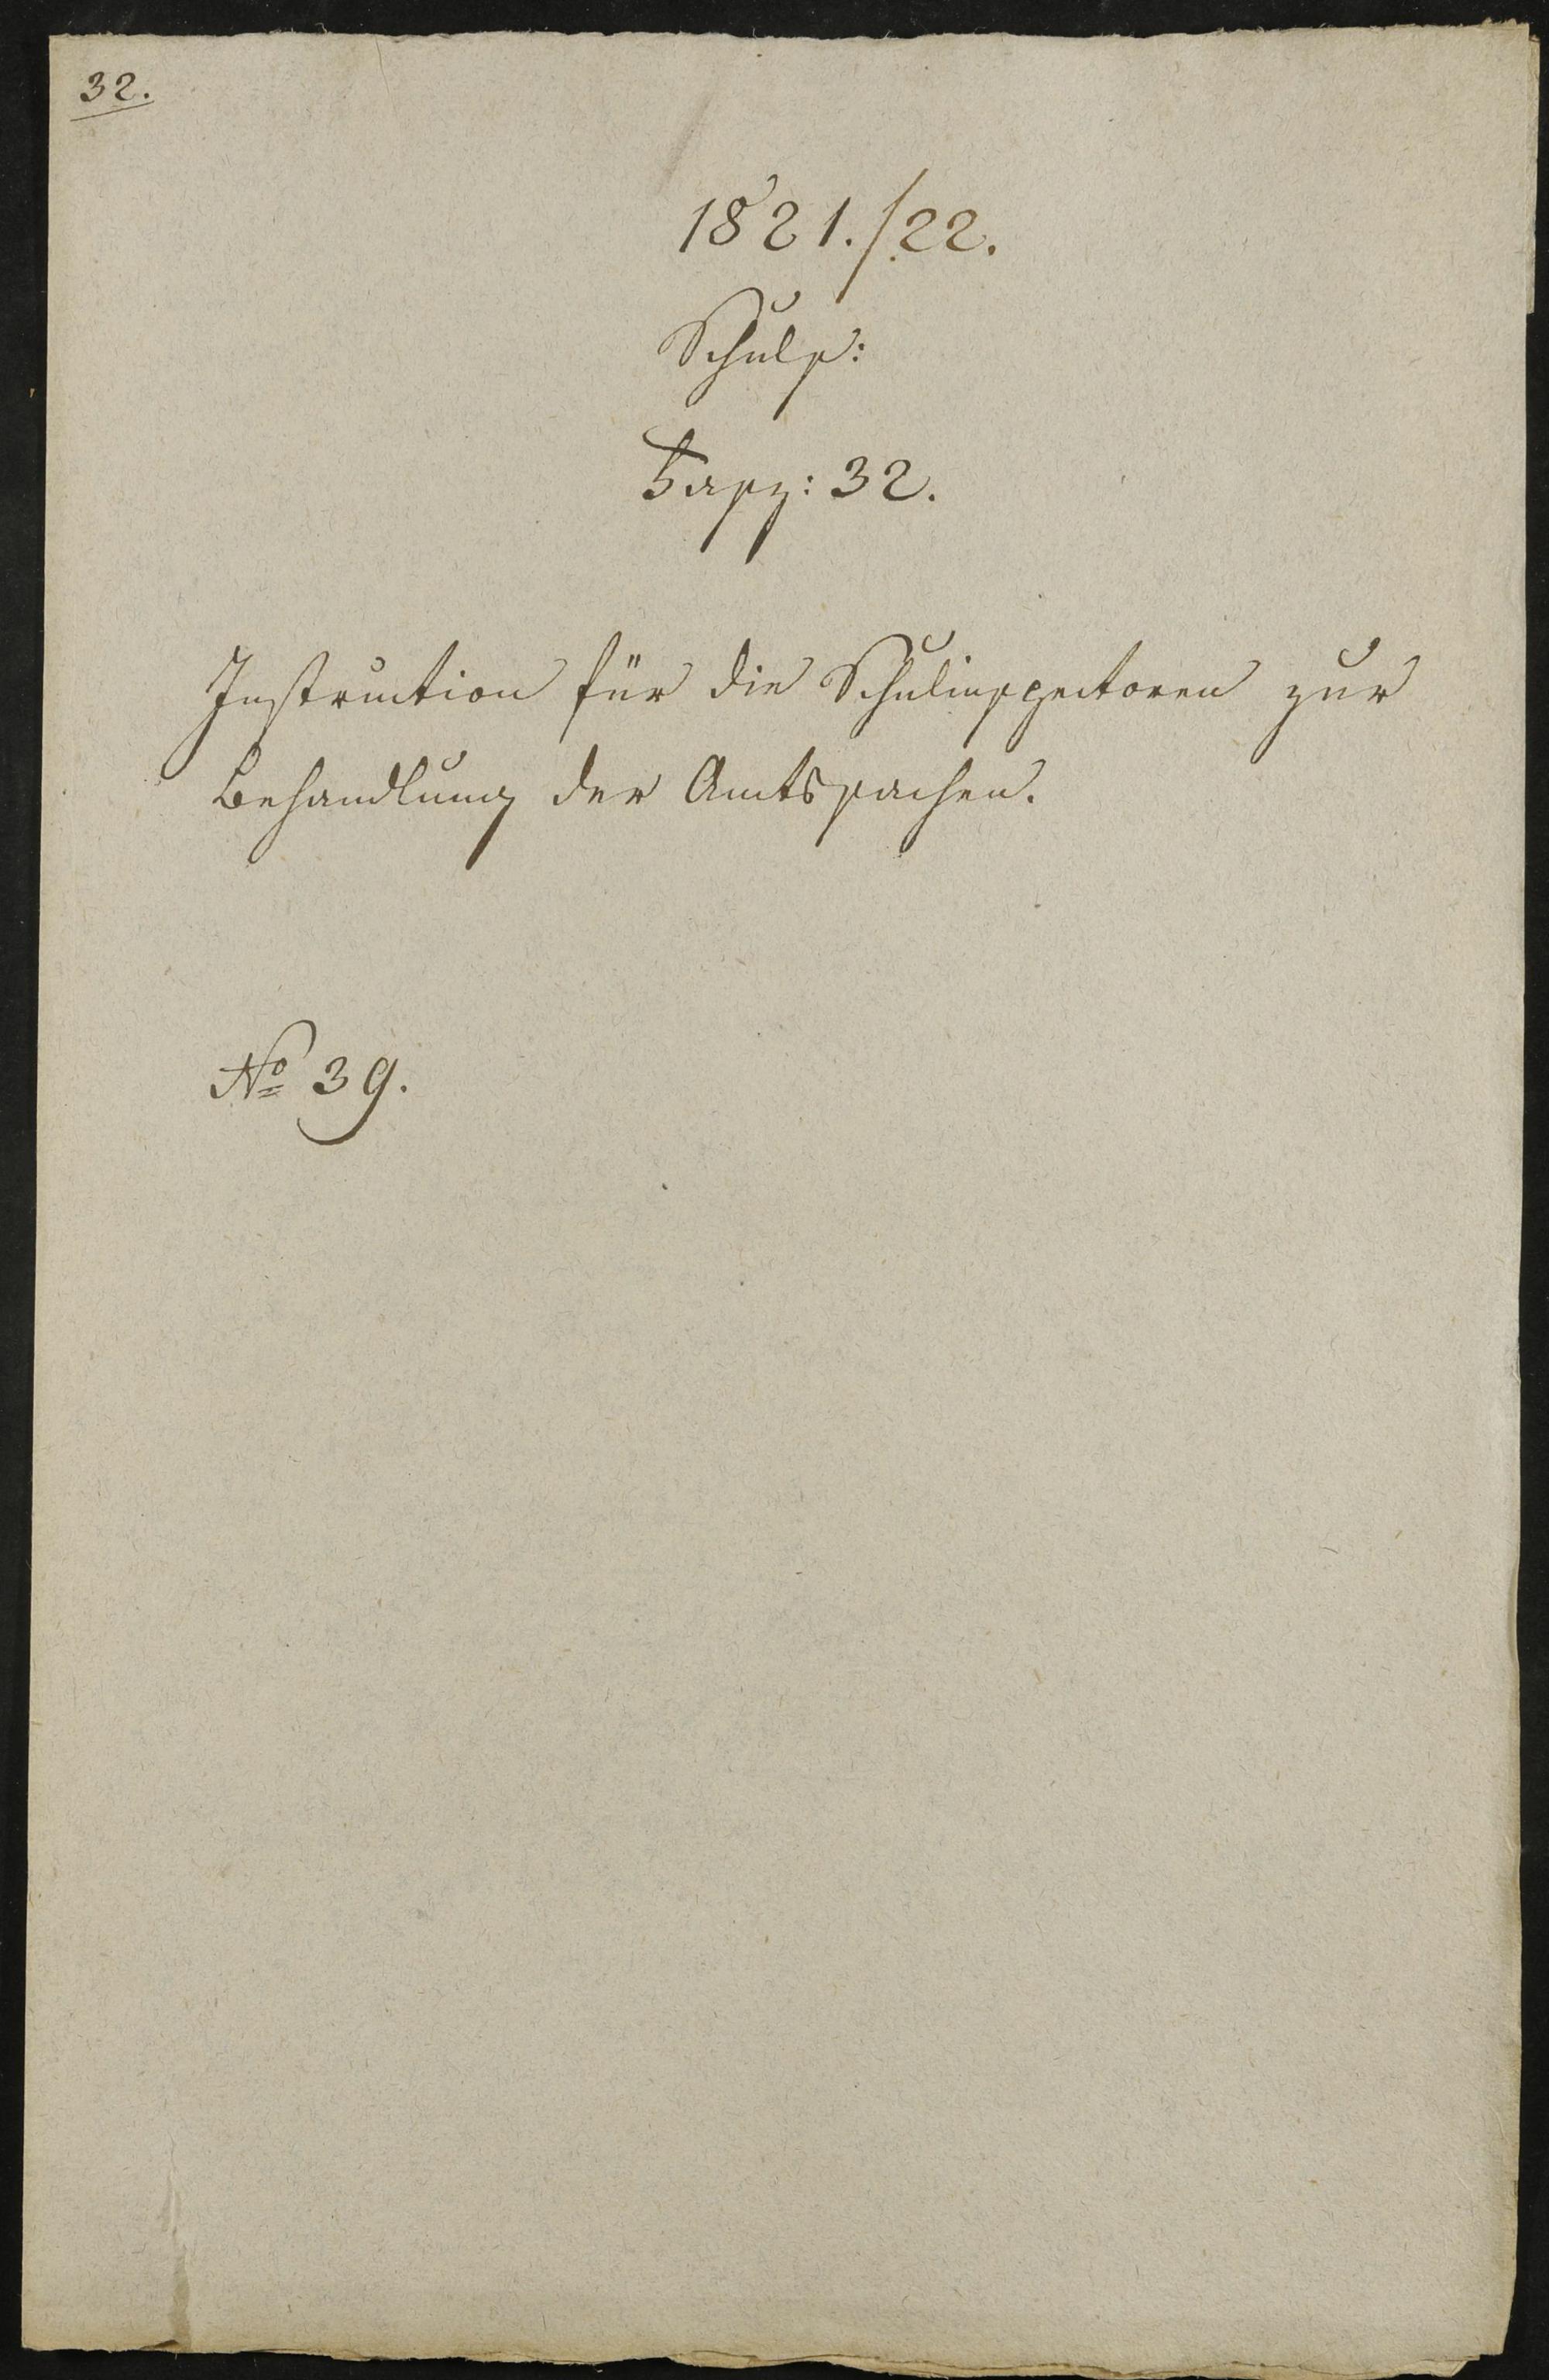 32.
1821./22.
Schuls:
Fasz: 32.
Instruction für die Schulinspectoren zur
Behandlung der Amtssachen.
No 39.